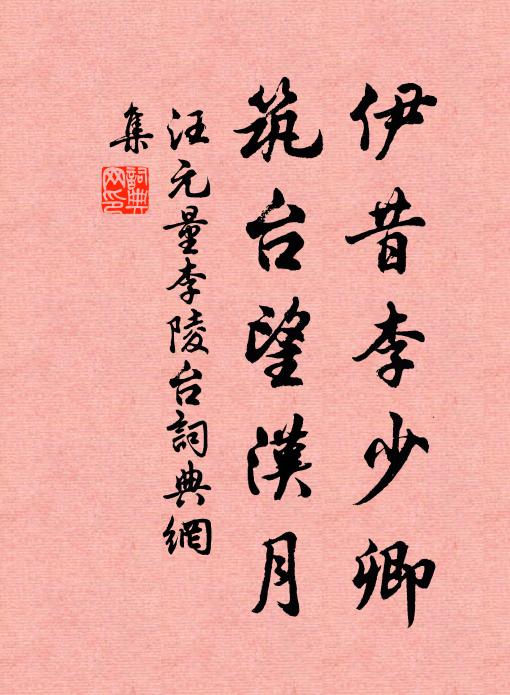 伊昔李少卿
筑台望漢月
汪元量李陵台詞典網
集
詞典网印